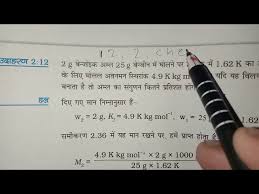 12. 2 che
उदाहरण 2:12
2 g बेन्जोइक अम्ल 25 g बेन्जीन में घोलने पर में 1.62 K का अ
के लिए मोलल अवनमन स्थिरांक 4.9 K kg m यदि यह विलय
बनाता है तो अम्ल का संगुणन कितने प्रतिशत होग
हल
दिए गए मान निम्नानुसार हैं-
w₂ = 2 g, K = 4.9 K kg mol⁻¹; w₁ =
समीकरण 2.36 में यह मान रखने पर, हमें प्राप्त होता है
M₂ = 4.9 K kg mol⁻¹ × 2 g × 1000
25 g × 1.62 K